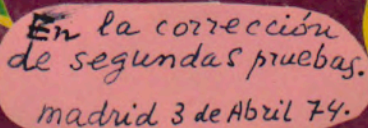 En la corrección
de segundas pruebas.
madrid 3 de Abril 74.